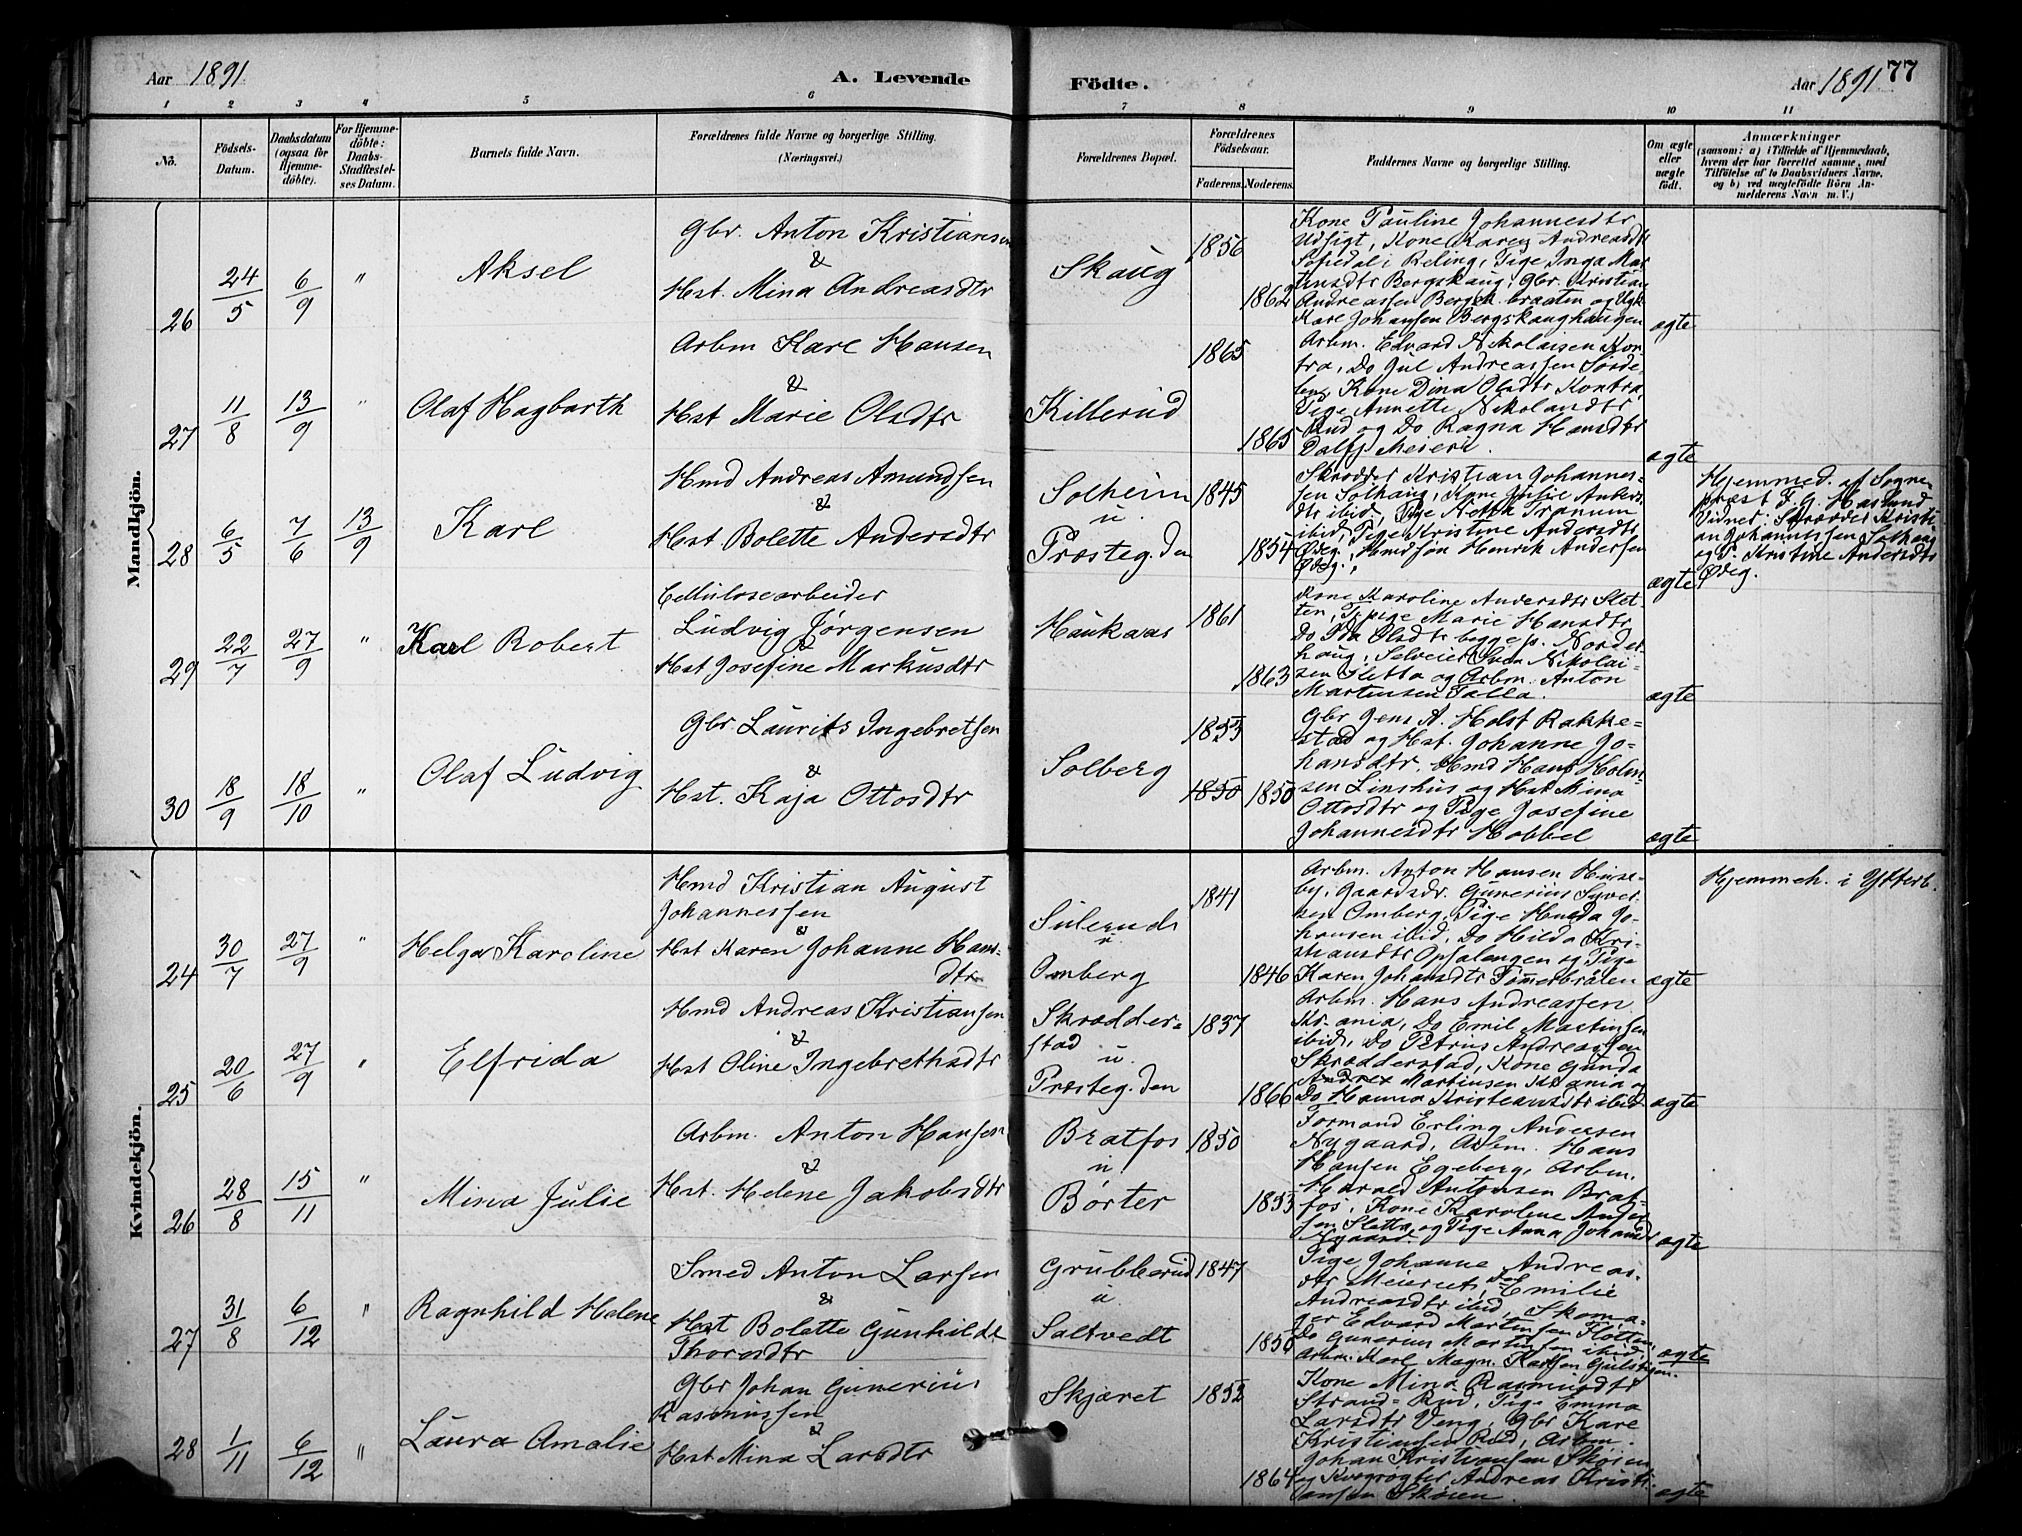 Aar 1891
A. Levende
Födte.
Aar 1891
77
1 2 3 4 5 6 7 8 9 10 11
No.
Födsels-
Datum.
Daabsdatum
(ogsaa for
Hjemme-
döbte).
For Hjemme-
döbte:
Daabs-
Stadfæstel-
ses Datum.
Barnets fulde Navn.
Forældrenes fulde Navne og borgerlige Stilling.
(Næringsvei.)
Forældrenes Bopæl.
Forældrenes
Födselsaar.
Faderens. Moderens.
Faddernes Navne og borgerlige Stilling.
Om ægte
eller
uægte
födt.
Anmærkninger
(saasom: a) i Tilfælde af Hjemmedaab,
hvem der har forrettet samme, med
Tilföielse af to Daabsvidners Navne,
og b) ved uægtefödte Börn An-
melderens Navn m. V.)
Mandkjön.
26
24/5
6/9
"
Aksel
Gbr. Anton Kristiansen
&
Hst. Mina Andreasdtr
Skaug
1856
1862
Kone Pauline Johannesdtr
Udsigt, Kone Karen Andreasdtr
i Reling, Pige Inga Mar
tinsdtr Bergskaug, Gbr. Kristian
Andreassen Bergsk. braaten og Ugk.
Karl Johansen Bergskaughaugen
ægte
27
11/8
13/9
"
Olaf Hagbarth
Arbm Karl Hansen
&
Hst Marie Olsdtr
Killerud
1865
1865
Arbm. Edvard Nikolaisen Kon-
tra, Do Jul Andreassen Sørde-
Kone Dina Olsdtr Kontra,
Pige Annette Nikolaidtr
Rud og Do Ragna Hansdtr
Meieri.
ægte
28
6/5
7/6
13/9
Karl
Hmd Andreas Amundsen
&
Hst Bolette Andersdtr
Solheim
u.
Præsteg.den
1845
1854
Skrædder Kristian Johannes-
sen Solhaug, Kone
dtr ibid, Pige Tranum
ibid, Pige Kristine Andersdtr
Ødeg. Hmdsøn Henrik Andersen
Ødeg.
ægte
Hjemmed. af Sogne-
præst F. G. Haslund
Vidner: Skrædder Kristi-
an Johannessen Solhaug
og P. Kristine Andersdtr
Ødeg.
29
22/7
27/9
"
Karl Robert
Cellulosearbeider
Ludvig Jørgensen
&
Hst Josefine Markusdtr
Haukaas
1861
1863
Kone Karoline Andersdtr Slet-
ten, Tjpige Marie Hansdtr
Do Ida Olsdtr begge p. Norder-
haug, Selveier Sven Nikolai-
sen Sletta og Arbm. Anton
Martinsen Talla.
ægte
30
18/9
18/10
"
Olaf Ludvig
Gbr Laurits Ingebretsen
&
Hst. Kaja Ottosdtr
Solberg
1853
1850
1850
Gbr Jens A. Holst Rakke-
stad og Hst. Johanne Jo-
hansdtr, Hmd Hans Holm-
sen Linshus og Hst Mina
Ottosdtr og Pige Josefine
Johannesdtr Hobbel
ægte
Kvindekjön.
24
30/7
27/9
"
Helga Karoline
Hmd Kristian August
Johannessen
&
Hst Karen Johanne Hans-
dtr
Sulerud
u
Omberg
1841
1846
Arbm. Anton Hansen Huse-
by, Gaardsdr. Gunerius Syver-
sen Omberg, Pige Hulda Jo-
hansen ibid, Do Hilda Kri-
stiansdtr Opsalengen og Pige
Karen Johansdtr Tømerbråten
ægte
Hjemmeh. i Ytterb.
25
20/6
27/9
"
Elfrida
Hmd Andreas Kristiansen
&
Hst Oline Ingebrethsdtr
Skrædder-
stad
u.
Præsteg.den
1837
1866
Arbm. Hans Andreassen
Kr.ania, Do Emil Martinsen
ibid, Do Petrus Andreassen
Skrædderstad, Kone Gunda
Martinsen Kr.ania og
Do Hanna Kristiansdtr ibid
ægte
26
28/8
15/11
"
Mina Julie
Arbm. Anton Hansen
&
Hst. Helene Jakobsdtr
Bratfos
u.
Børter
1850
1853
Formand Erling Andersen
Nygaard, Arbm. Hans
Hansen Egeberg, Arbm.
Harald Antonsen Brat-
fos, Kone Karoline Ander
sen Sletta og Pige Anna Johansdtr
Nygaard.
ægte
27
31/8
6/12
"
Ragnhild Helene
Smed Anton Larsen
&
Hst Bolette Gunhilde
Thorsdtr
Grubberud
u
Saltvedt
1847
1850
Pige Johanne Andreas-
dtr Meieriet, Do Emilie
Andreasdtr ibid, Skoma-
ger Edvard Martinsen Fløtten,
Do Gunerius Martinsen ibid,
Arbm. Karl Magn. Karlsen Gulstigen.
ægte
28
1/11
6/12
"
Laura Amalie
Gbr Johan Gunerius
Rasmussen
&
Hst Mina Larsdtr
Skjæret
1852
1864
Kone Mina Rasmusdtr
Strand-Rud, Pige Emma
Larsdtr Veng, Gbr Kare
Kristiansen Rud, Arbm.
Johan Kristiansen Skøien
og Kvægrøgter Andreas Kristi-
ansen Skøien.
ægte